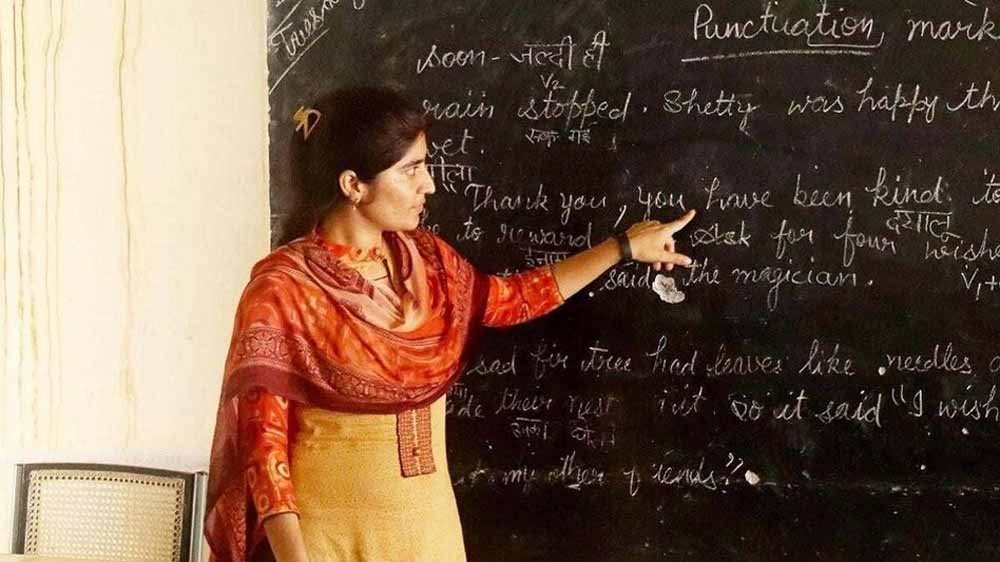 Punctuation mark
soon - जल्दी ही
V2
rain stopped. Shetty was happy th
रूक गई
wet.
गीला
"Thank you, you have been kind. to
दयालू
to reward Ask for four wishe
ईनाम
said the magician. V1+
sad fir tree had leaves like needles
their nest in it. So it said "I wish
इनका
my other friends?"